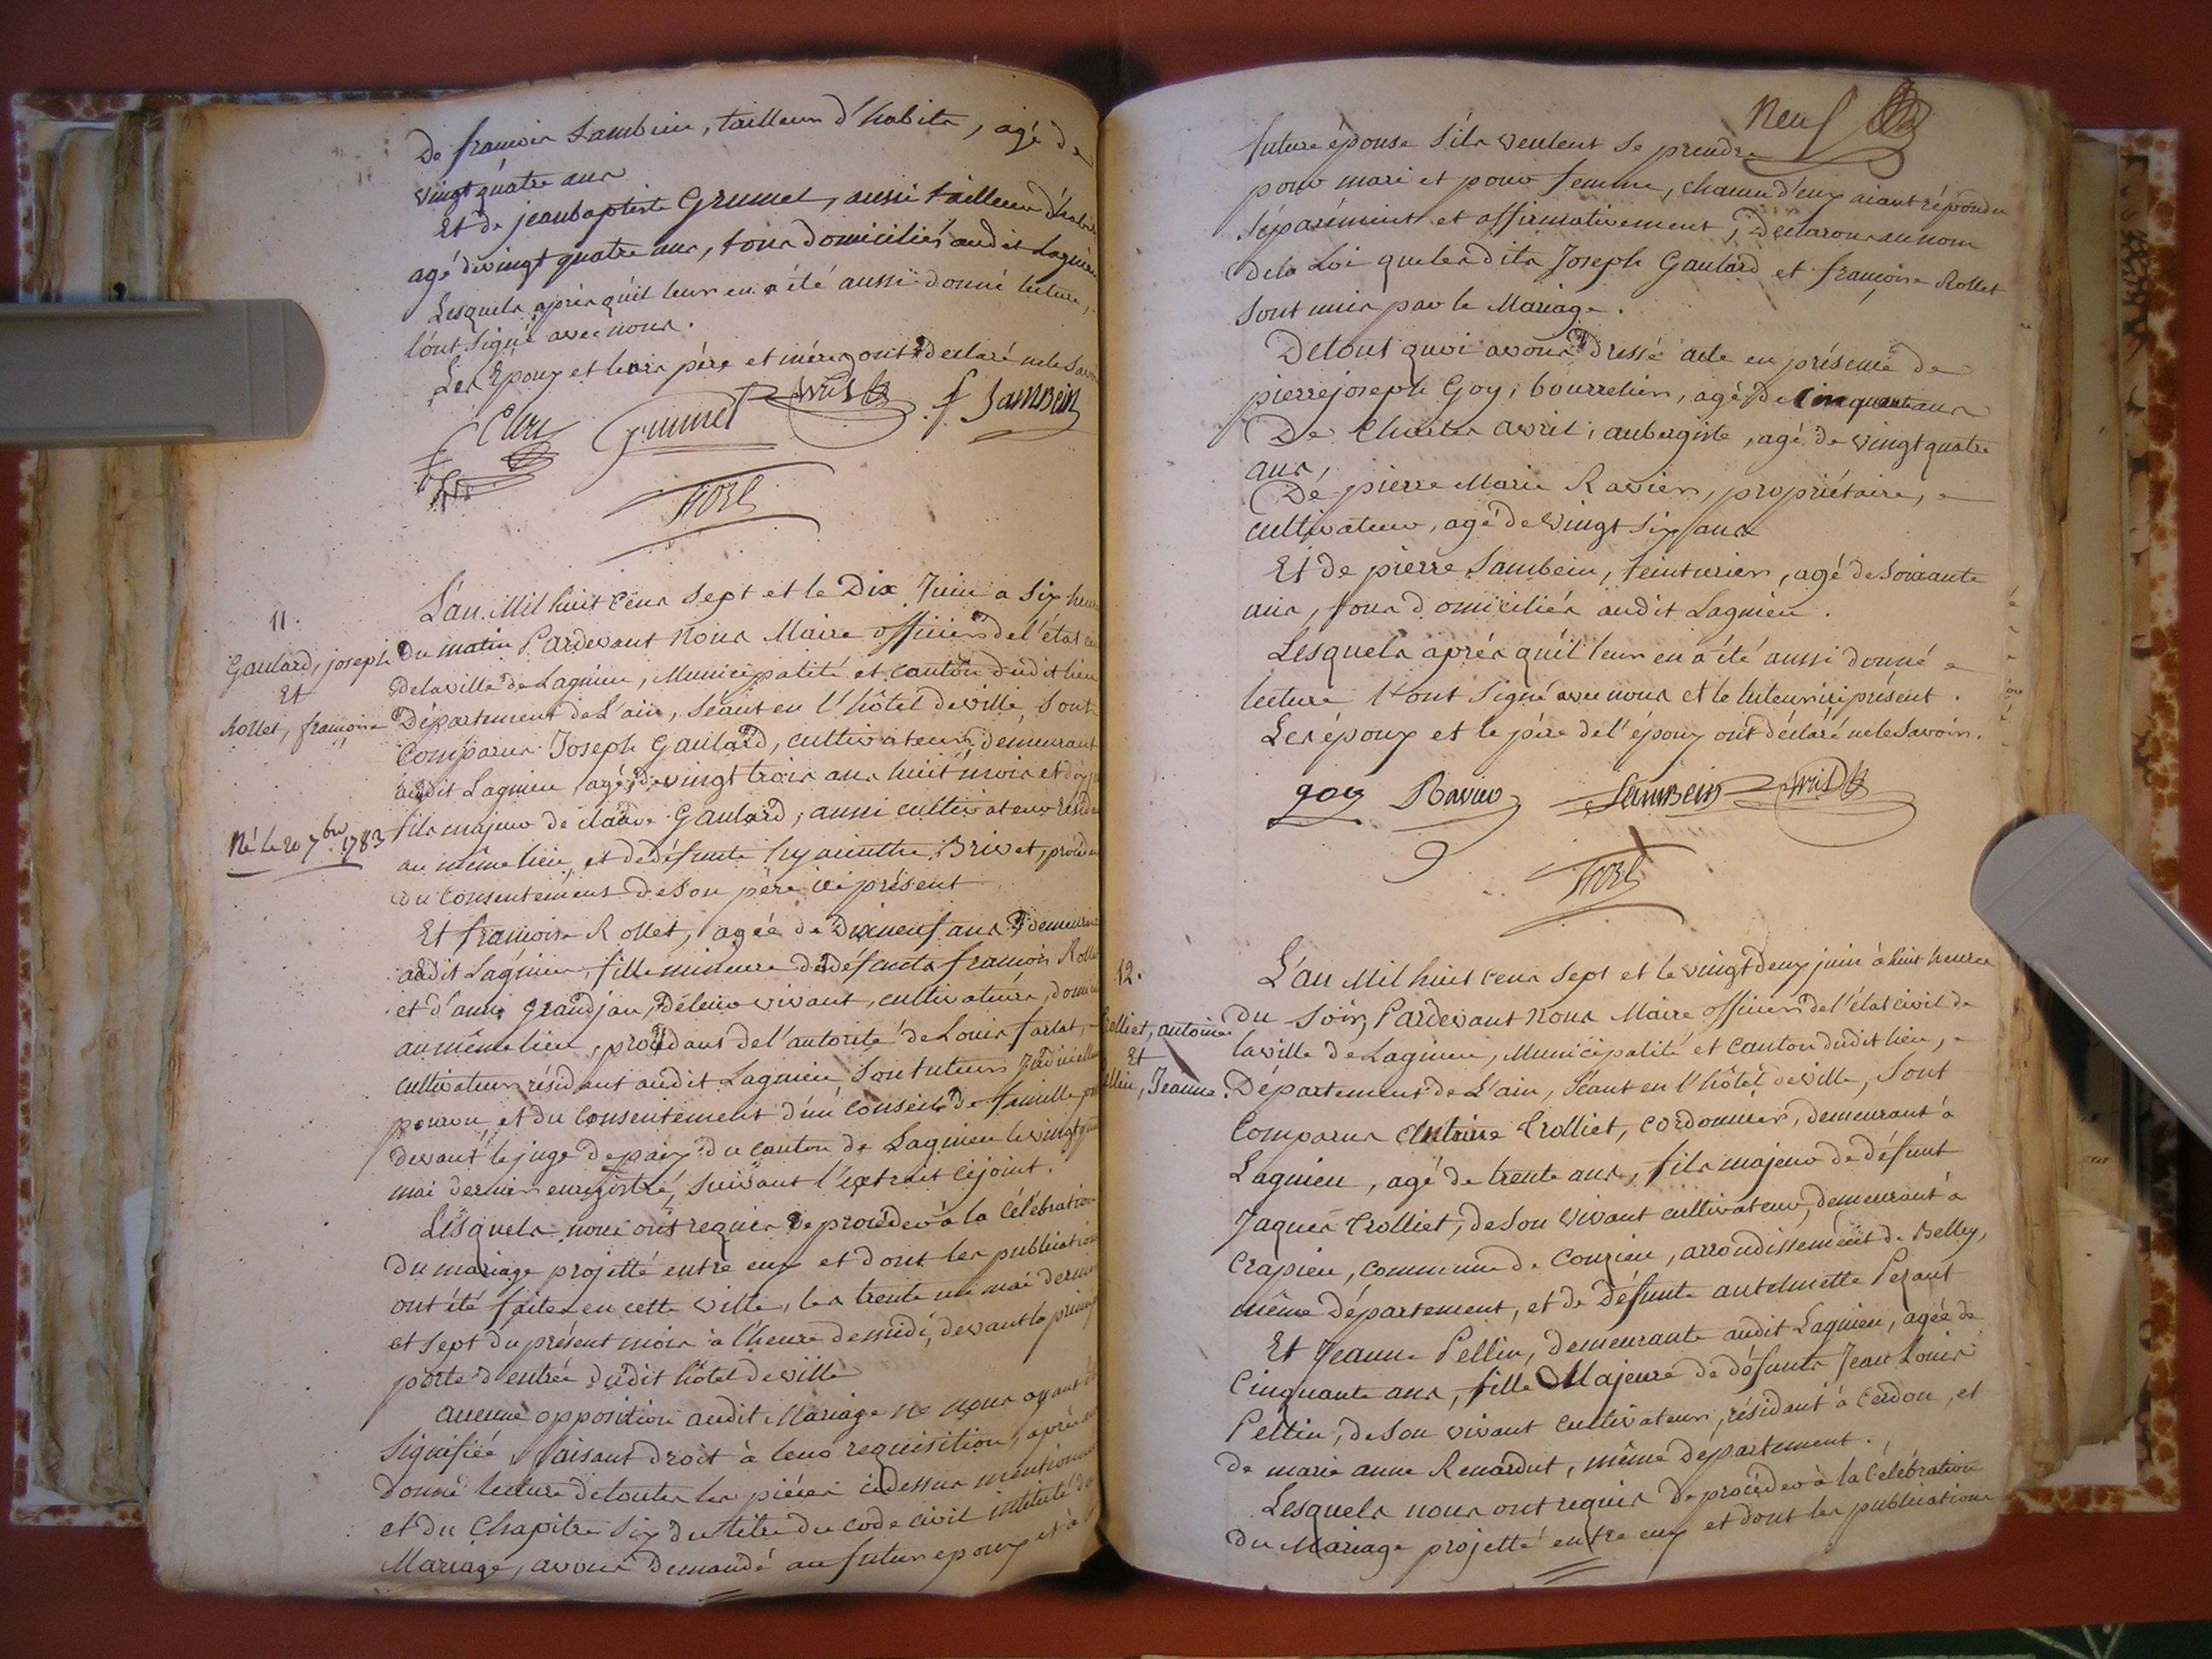 De francois Sambein, tailleur d'habits, agé de
vingt quatre ans
Et de jean baptiste Grumet, aussi tailleur d'habits
agé de vingt quatre ans, tous domiciliés audit Lagnieu
Lesquels après qu'il leur en a été aussi donné lecture,
l'ont signé avec nous.
Les Epoux et leurs père et mères ont déclaré ne le savoir
Grumet Avril f Sambein
11.
Gaulard, joseph
Et
Rollet, françoise
Né le 20 7bre 1783
L'an Mil huit cens sept et le Dix Juin a six heures
du matin Pardevant Nous Maire officier de l'état
de la ville de Lagnieu, Municipalité et canton dudit lieu
Département de L'ain, séant en l'hôtel de ville, sont
Comparus Joseph Gaulard, cultivateur, demeurant
audit Lagnieu agé de vingt trois ans huit mois et dix
fils majeur de claude Gaulard, aussi cultivateur
au même lieu, et de défunte hyacinthe Brivet, procédant
du consentement de son père ici présent
Et françoise Rollet, agée de Dix neuf ans demeurant
audit Lagnieu, fille mineure de défunts francois Rollet
et d'anne grandjan, de leur vivant, cultivateurs,
au même lieu, procédant de l'autorité de Louis farlat,
cultivateur résidant audit Lagnieu Son tuteur
pourvu, et du consentement d'un conseil de famille
devant le juge de paix du canton de Lagnieu le vingt
mai dernier enregistré, suivant l'extrait cijoint.
Lesquels nous ont requis de procéder à la célébration
du mariage projetté entre eux et dont les publications
ont été faites en cette ville, les trente un mai dernier
et sept du présent mois à l'heure de midi, devant la
porte d'entrée dudit hôtel de ville
aucune opposition audit Mariage ne nous ayant été
signifiée, faisant droit à leur requisition, après
donné lecture de toutes les pièces cidessus mentionnées
et du Chapitre six du titre du code civil intitulé du
Mariage, avons demandé au futur epoux et à
Neuf
future épouse s'ils veulent se prendre
pour mari et pour femme, chacun d'eux aiant répondu
séparément et affirmativement, Declarons au nom
de la Loi que lesdits Joseph Gaulard et françoise Rollet
sont unis par le Mariage.
De tout quoi avons dressé acte en présence de
pierre joseph Goy, bourrelier, agé de Cinquante ans
De Charles avril, aubergiste, agé de vingt quatre
ans,
De pierre Marie Ravier, propriétaire,
cultivateur, agé de vingt six ans
Et de pierre Sambein, teinturier, agé de soixante
ans, tous domiciliés audit Lagnieu.
Lesquels après qu'il leur en a été aussi donné
lecture l'ont signé avec nous et le tuteur ici présent.
Les époux et le père de l'époux ont déclaré ne le savoir.
goy Ravier Sambein Avril
12.
Trolliet, antoine
Et
Pellin, Jeanne.
L'an Mil huit cens sept et le vingt deux juin à huit heures
du soir, Pardevant Nous Maire officier de l'état civil de
la ville de Lagnieu, Municipalité et canton dudit lieu,
Département de L'ain, séant en l'hôtel de ville, sont
Comparus Antoine Trolliet, cordonnier, demeurant à
Lagnieu, agé de trente ans, fils majeur de défunt
Jaques Trolliet, de son vivant cultivateur, demeurant à
Crapieu, commune de Conzieu, arrondissement de Belley,
même Département, et de défunte antelmette Pezant
Et Jeanne Pellin, demeurante audit Lagnieu, agée de
Cinquante ans, fille Majeure de défunts Jean Louis
Pellin, de son vivant cultivateur, résidant à Cerdon, et
de marie anne Renardut, même département.
Lesquels nous ont requis de procéder à la célébration
du Mariage projetté entre eux et dont les publications